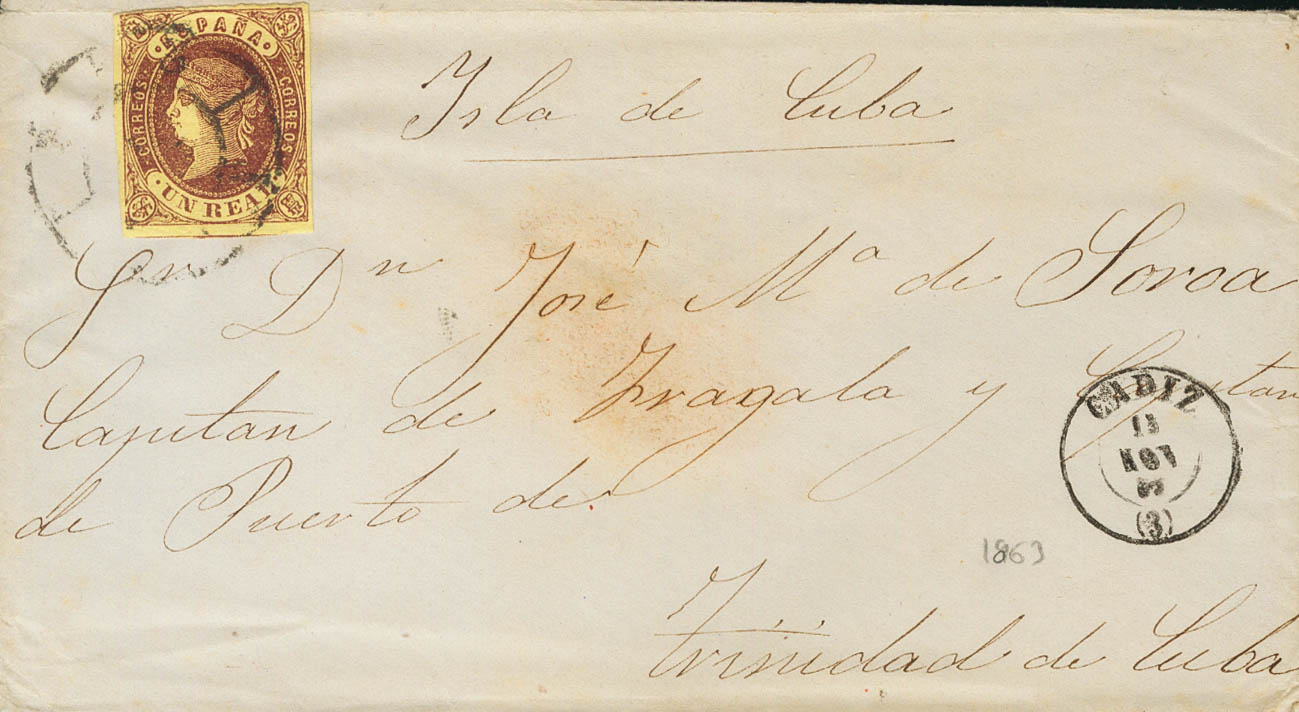 ESPAÑA
CORREOS
CORREOS
UN REAL
Isla de Cuba
Sr Dn José Mª de Soroa
Capitan de Fragata y Capitan
de Puerto de
CADIZ
NOV
(3)
1863
Trinidad de Cuba